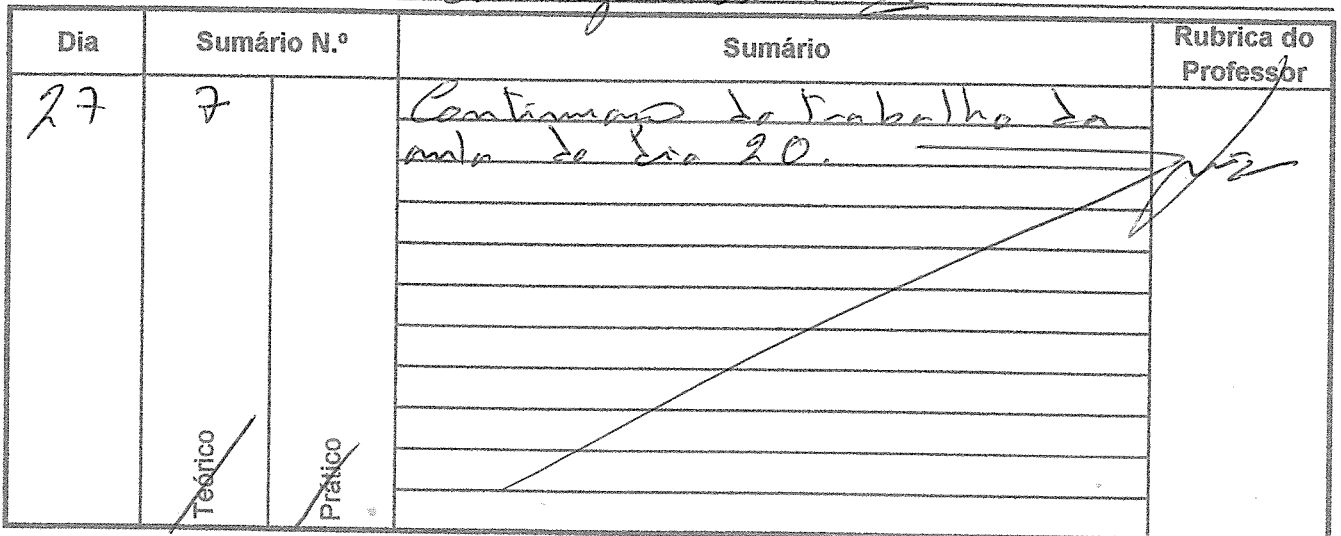 Dia Sumário N.º Sumário Rubrica do Professor
27 7 Continuação do trabalho da
aula do dia 20.
Teórico Prático